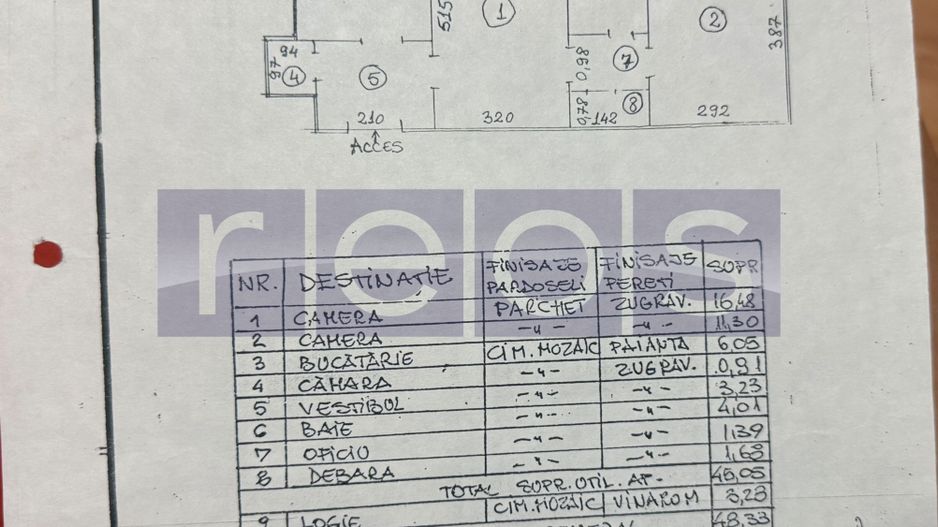 515
1
2
387
94
97
4
5
0,98
7
0,78
8
210
320
142
292
ACCES
reps
NR. DESTINATIE FINISAJE PARDOSELI FINISAJE PERETI SUPR
1 CAMERA PARCHET ZUGRAV. 16,48
2 CAMERA -"- -"- 11,30
3 BUCĂTĂRIE CIM.MOZAIC FAIANTA 6,05
4 CĂMARA -"- ZUGRAV. 0,91
5 VESTIBUL -"- -"- 3,23
6 BAIE -"- -"- 4,01
7 OFICIU -"- -"- 1,39
8 DEBARA -"- -"- 1,68
TOTAL SUPR. UTIL. AP. 45,05
9 LOGIE CIM.MOZAIC VINAROM 3,28
48,33